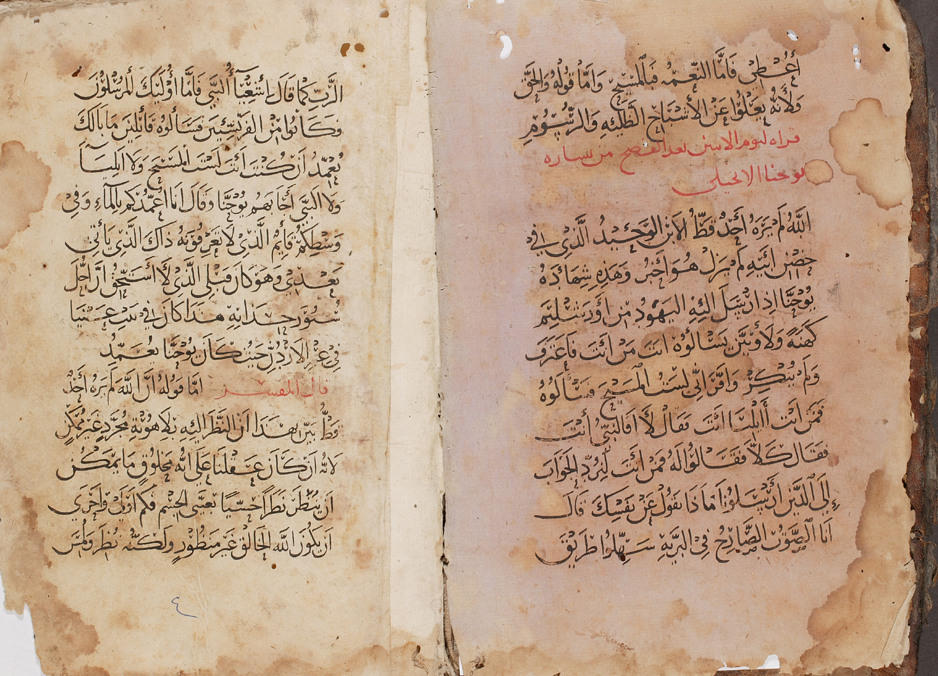 أُعْطِيَ فَامَّا النِّعْمَهُ فَبِالْمَسِيحِ وَامَّا قَوْلُهُ وَالحَقّ
وَلأنَّهُ يَعْلُوا عَنِ الأَشْبَاحِ الظِّلِّيَهِ وَالرُّسُومِ
قراه ليوم الاثنين بعد الفصح من بشاره
يوحنا الانجيلي
اللَّهُ لَمْ يَرَهُ أَحَدٌ قَطُّ الاِبْنُ الْوَحِيدُ الَّذِي فِي
حضْنِ ابِيهِ لَمْ يَزَلْ هُوَ أَخْبَرَ وَهَذِهِ شِهَادَهُ
يُوحَنَّا اِذْ ارْسَلَ اليْهِ اليَهُودُ مِنْ أُورَشَلِيمَ
كَهَنَةً وَلاَوِيِّينَ يَسْألُوهُ انتَ مَنْ أنتَ فَاعْتَرَفَ
وَلَمْ يُنْكِرْ وَاقَرَّ انِّي لَسْتُ المَسِيحَ فَسَألُوهُ
فَمَنْ انْتَ أَايلِيَّا أنتَ فَقَالَ لاَ أفَالنَّبِيُّ أنْتَ
فَقَالَ كَلَّا فَقَالُوا لَهُ فَمَنْ أنتَ لِنَرُدَّ الجَوَابَ
إِلَى الَّذِينَ ارْسَلُونَا مَاذَا تقُولُ عَنْ نَفْسِكَ قَالَ
أنَا الصَّوْتُ الصَّارِخُ فِي البَرِّيَهِ سَهِّلُوا طَرِيقَ
الرَّبِّ كمَا قَالَ اشَعْيَا النَّبِي فَامَّا أُوْلَئِكَ المُرْسَلُونَ
وَكَانُوا مِنْ الفَرِيسِيِّينَ فَسَألُوهُ قَائِلِينَ مَا بَالُكَ
تُعَمِّدُ اَنْ كُنْتَ أَنتَ لَسْتَ المَسِيحَ وَلاَ ايلِيَّا
وَلاَ النَّبِيَّ أجَابَهُمْ يُوحَنَّا وَقَالَ أنَا أُعَمِّدُكُمْ بِالْمَاءِ وَفِي
وَسْطِكُمْ قَايِمٌ الَّذِي لاَ تَعْرِفُونَهُ ذَاكَ الَّذِي يَأتِي
بَعْدِي وَهُوَ كَانَ قَبْلِي الَّذِي لاَ أَسْتَحِقُّ انْ احُلَّ
سُيُورَ حِذَايِهِ هَذَا كَانَ فِي بيت عنيا
فِي عبْرِ الأُرْدُنِّ حَيْثُ كَانَ يُوحَنَّا يُعَمِّدُ
قال المفسر امَّا قَوْلُهُ انَّ اللَّهَ لَمْ يَرَهُ أحَدٌ
قطُّ بَيَّنَ بِهَذَا أنَّ النَّظَرَ الَيْهِ بِلاَهُوتِهِ مُجَرَّدٍ غَيْرُ مُمْكِنٍ
لاَنَّهُ انْ كَانَ عَقْلُنَا عَلَى انَّهُ مَخْلُوقٍ مَا تَمَكَّنَ
انْ يُنْظَرَ نَظَراً حِسِّيًّا بعَيْنَي الجِسْمِ فَكَمْ اوْلَى وَأحْرَى
انْ يَكُونَ اللَّهُ الخَالِقُ غَيْرَ مَنْظُورٍ وَلَكِنَّهُ
٤